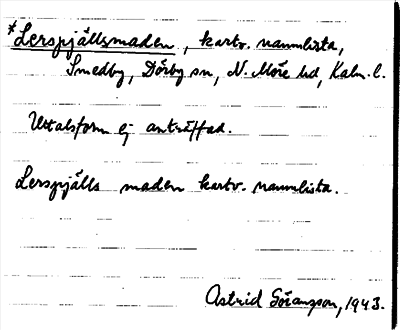 *Lerspjällsmaden, kartv. namnlista,
Smedby, Dörby sn, N. Möre hd, Kalm. l.
Uttalsform ej anträffad.
Lerspjälls maden kartv. namnlista.
Astrid Göransson, 1943.